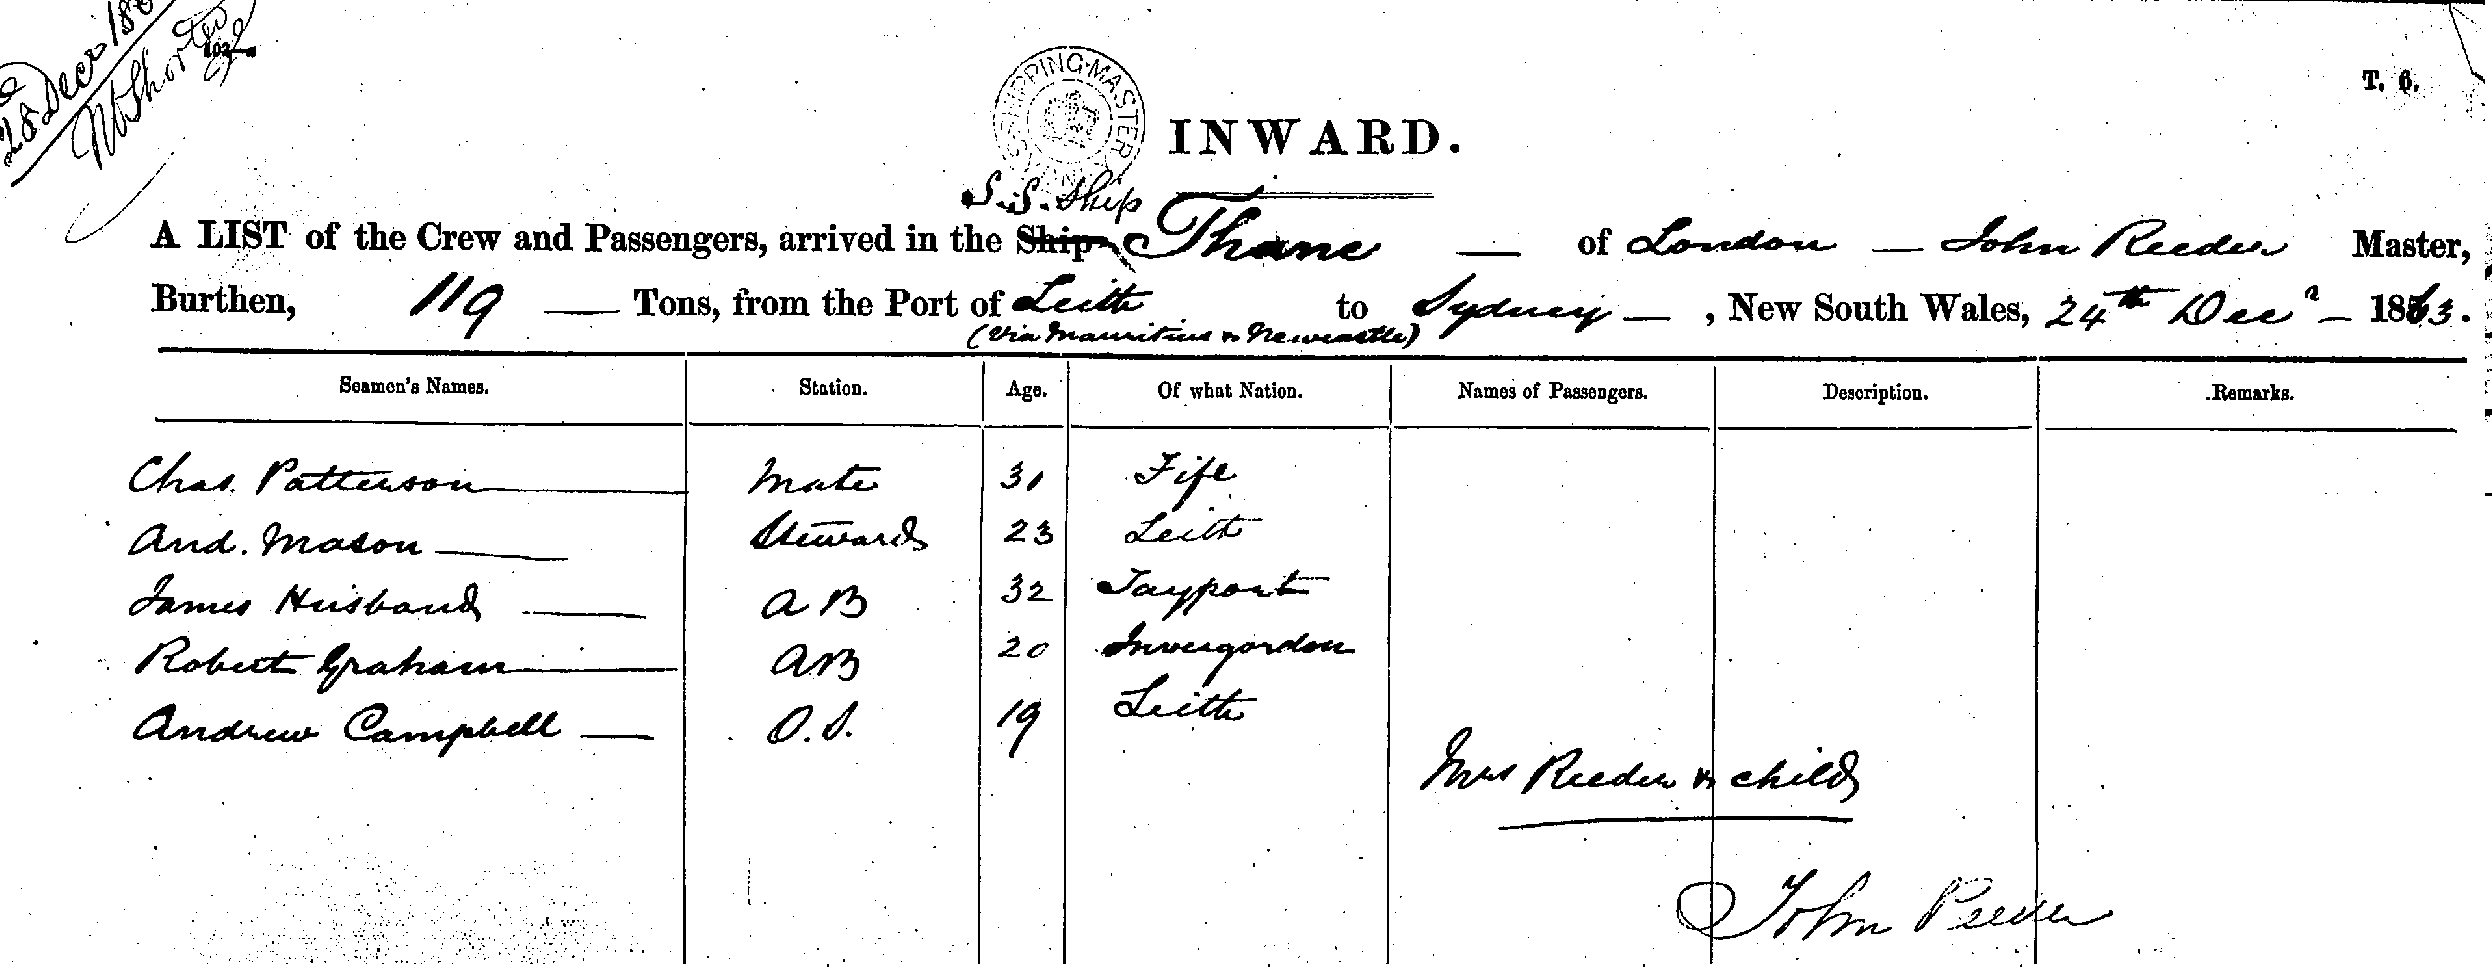 28 Decr 186
T. 6.
SHIPPING MASTER
INWARD.
S.S. Ship
A LIST of the Crew and Passengers, arrived in the Ship Thane — of London — John Reeder Master,
Burthen, 119 — Tons, from the Port of Leith to Sydney — , New South Wales, 24th Decr — 1863.
(Via Mauritius & Newcastle)
Seamen's Names. Station. Age. Of what Nation. Names of Passengers. Description. Remarks.
Chas. Patterson — Mate 31 Fife
And. Mason — Steward 23 Leith
James Husband — AB 32 Tayport
Robert Graham — AB 20 Invergordon
Andrew Campbell — O.S. 19 Leith
Mrs Reeder & child
John Reeder